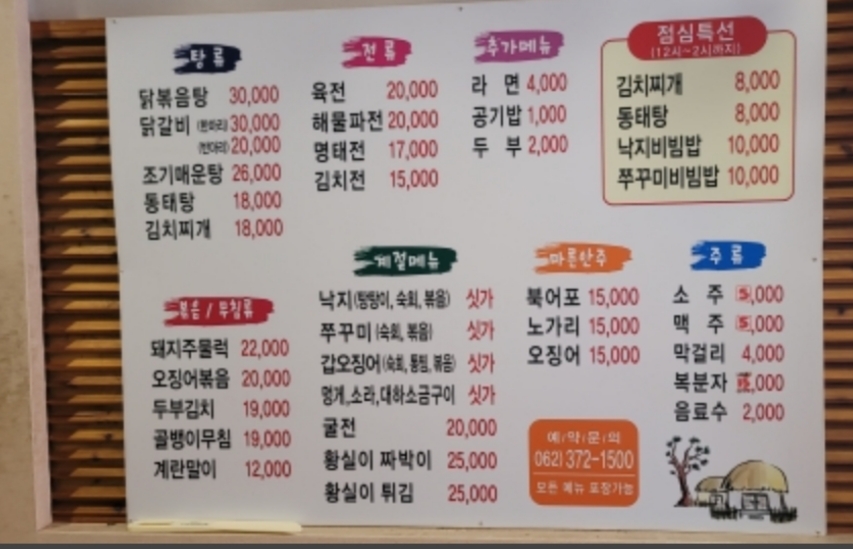 탕 류
닭볶음탕 30,000
닭갈비 (한마리) 30,000
(반마리) 20,000
조기매운탕 26,000
동태탕 18,000
김치찌개 18,000
전 류
육전 20,000
해물파전 20,000
명태전 17,000
김치전 15,000
추가메뉴
라 면 4,000
공기밥 1,000
두 부 2,000
점심특선
(12시~2시까지)
김치찌개 8,000
동태탕 8,000
낙지비빔밥 10,000
쭈꾸미비빔밥 10,000
볶음 / 무침류
돼지주물럭 22,000
오징어볶음 20,000
두부김치 19,000
골뱅이무침 19,000
계란말이 12,000
계절메뉴
낙지(탕탕이, 숙회, 볶음) 싯가
쭈꾸미 (숙회, 볶음) 싯가
갑오징어(숙회, 통찜, 볶음) 싯가
멍게,소라,대하소금구이 싯가
굴전 20,000
황실이 짜박이 25,000
황실이 튀김 25,000
마른안주
북어포 15,000
노가리 15,000
오징어 15,000
예/약/문/의
062) 372-1500
모든 메뉴 포장가능
주 류
소 주 5,000
맥 주 5,000
막걸리 4,000
복분자
음료수 2,000